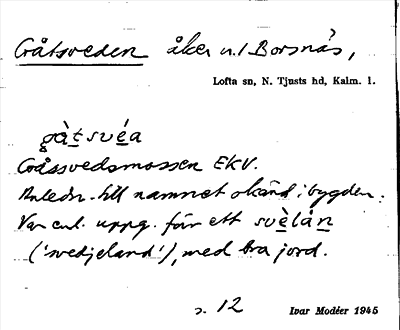 Gråtsveden åker u./ Borsnäs,
Lofta sn, N. Tjusts hd, Kalm. l.
gàtsvéa
Gråssvedsmossen EKV.
Anledn. till namnet okänd i bygden.
Var enl. uppg. för ett svèlån
('svedjeland'), med bra jord.
s. 12
Ivar Modéer 1945